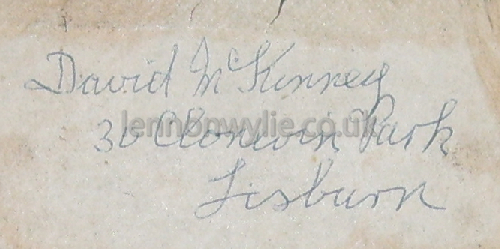 David McKinney
30 Clonevin Park
Lisburn
lennonwylie.co.uk